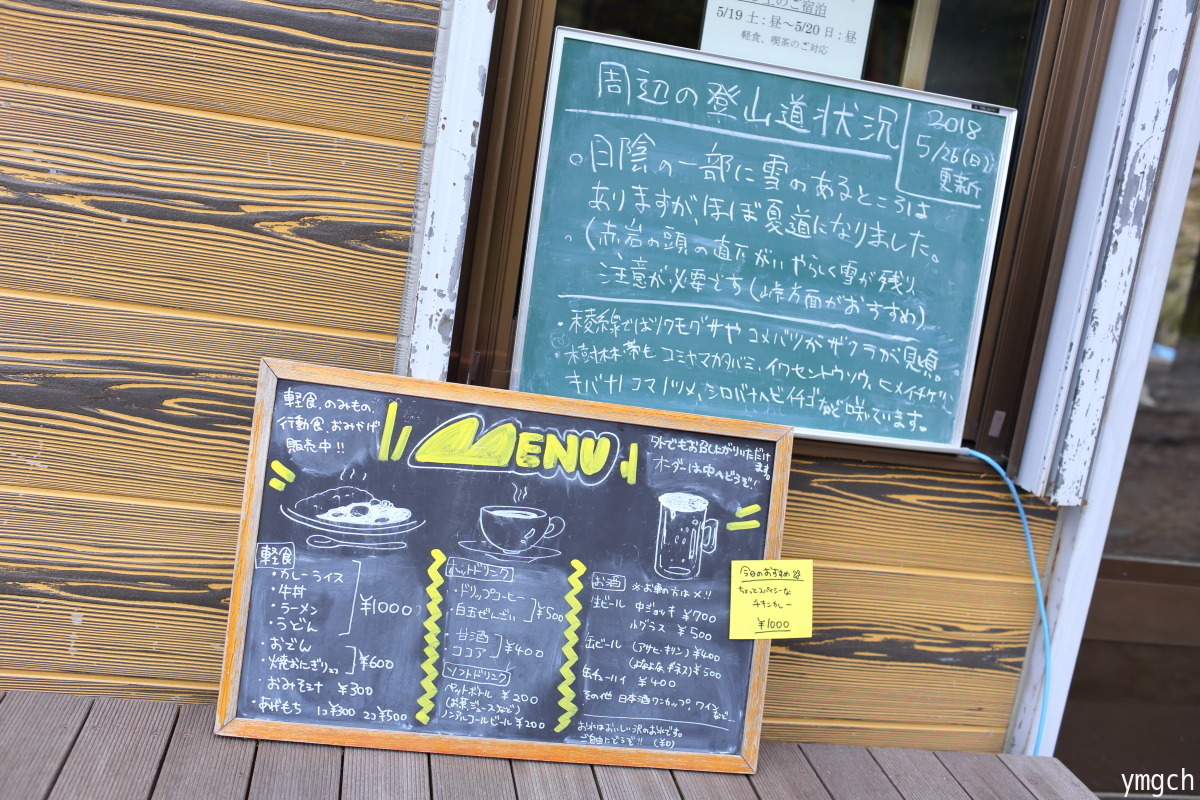 5/19 土:昼～5/20 日:昼
軽食、喫茶のご対応
周辺の登山道状況
2018
5/26(日)
更新
日陰の一部に雪のあるところは
ありますが、ほぼ夏道になりました。
(赤岩の頭の直下がいやらしく雪が残り、
注意が必要です(峠方面がおすすめ)
・稜線ではツクモグサや コメバツガザクラが見頃。
・樹林帯も コミヤマカタバミ、イワセントウソウ、ヒメイチゲ、
キバナノコマノツメ、シロバナヘビイチゴなど咲いています。
軽食、のみもの、
行動食、おみやげ
販売中!!
MENU
外でもお召し上がりいただけ
ます。
オーダーは中へどうぞ!
軽食
・カレーライス
・牛丼
・ラーメン
・うどん
¥1000
・おでん
・焼おにぎり
¥600
・おみそ汁 ¥300
・あげもち 1コ¥300 2コ¥500
ホットドリンク
・ドリップコーヒー
・白玉ぜんざい
¥500
・甘酒
・ココア
¥400
ソフトドリンク
ペットボトル ¥200
(お茶、ジュースなど)
ノンアルコールビール ¥200
お酒 ※お車の方は〆!!
生ビール 中ジョッキ ¥700
グラス ¥500
缶ビール (アサヒ・キリン) ¥400
(よなよな、ギネス) ¥500
缶チューハイ ¥400
その他 日本酒ワンカップ、ワイン
など…
お水はおいしい沢のお水です。
ご自由にどうぞ!! (¥0)
今日のおすすめ
ちょっとスパイシーな
チキンカレー
¥1000
ymgch